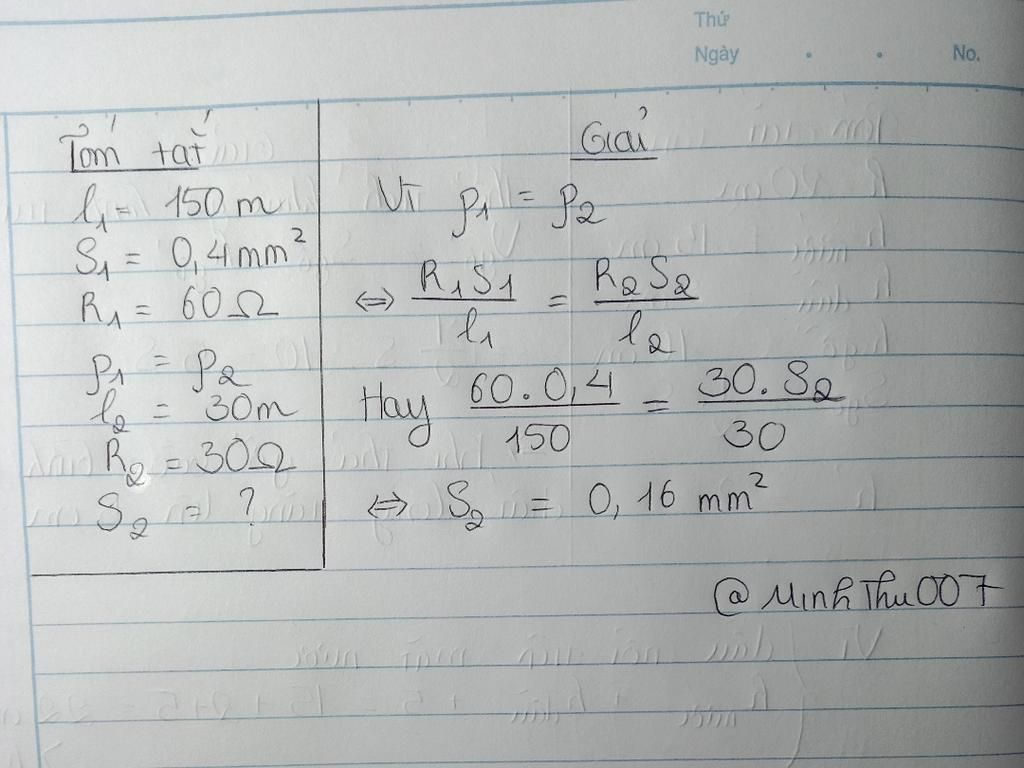 Thứ
Ngày . . No.
Tóm tắt
l₁ = 150 m
S₁ = 0,4 mm²
R₁ = 60 Ω
ρ₁ = ρ₂
l₂ = 30m
R₂ = 30Ω
S₂ = ?
Giải
Vì ρ₁ = ρ₂
⇔ R₁S₁/l₁ = R₂S₂/l₂
Hay 60.0,4/150 = 30.S₂/30
⇔ S₂ = 0,16 mm²
@MinhThu007